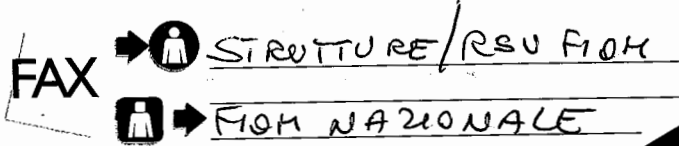 FAX
STRUTTURE/RSU FIOM
FIOM NAZIONALE